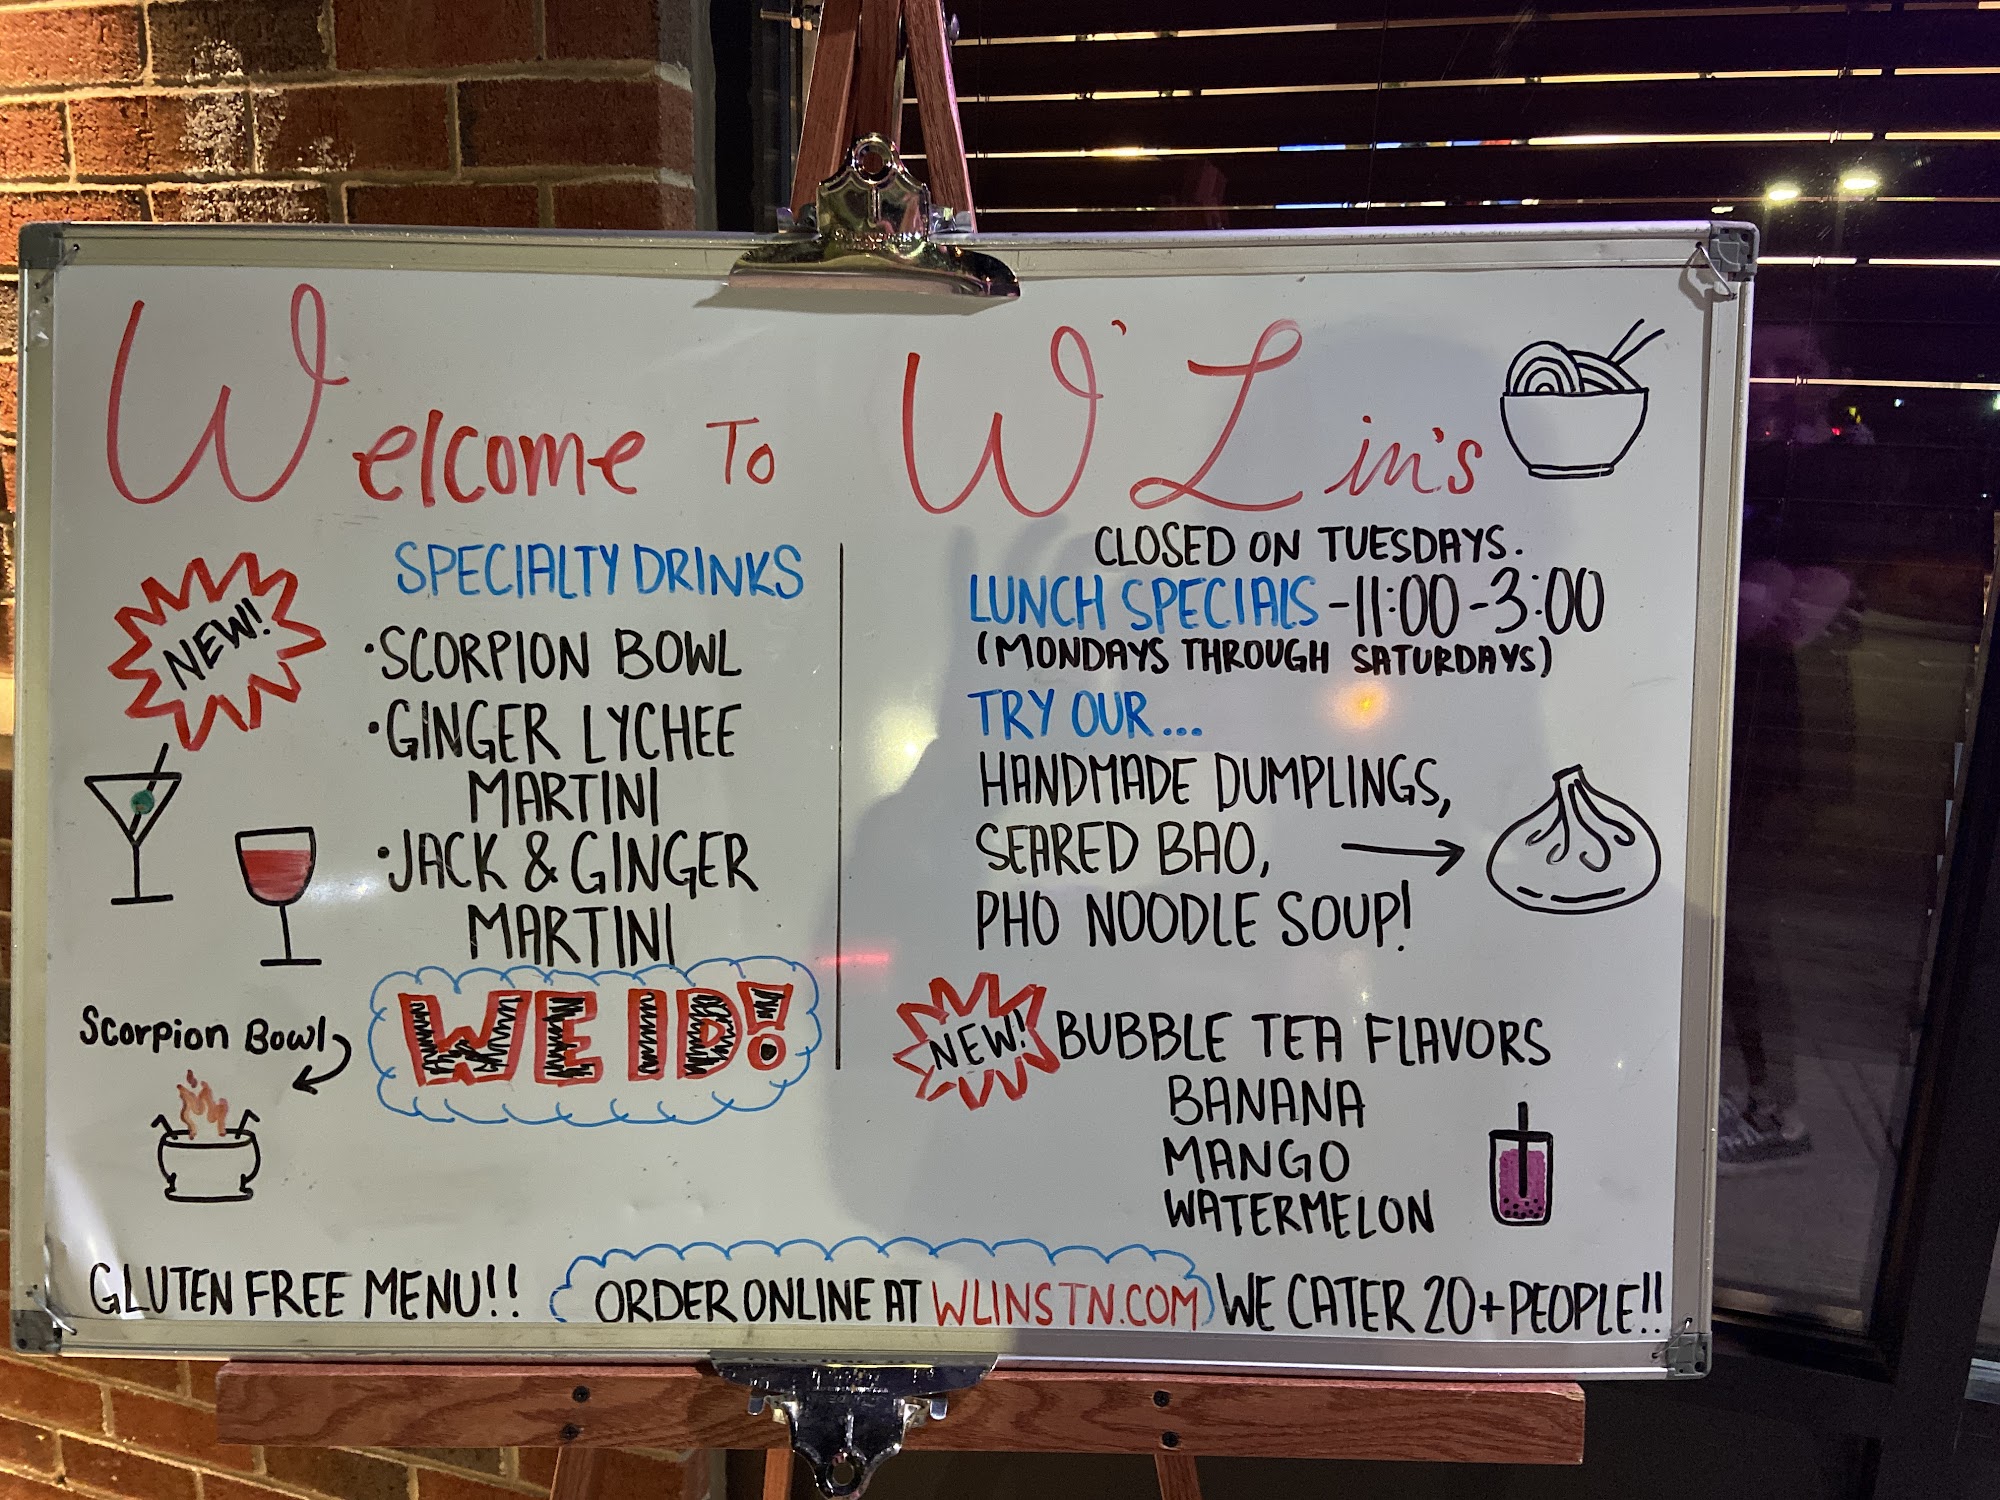 Welcome To W'Lin's
NEW!
SPECIALTY DRINKS
•SCORPION BOWL
•GINGER LYCHEE
MARTINI
•JACK & GINGER
MARTINI
WE ID!
Scorpion Bowl
CLOSED ON TUESDAYS.
LUNCH SPECIALS -11:00-3:00
(MONDAYS THROUGH SATURDAYS)
TRY OUR...
HANDMADE DUMPLINGS,
SEARED BAO,
PHO NOODLE SOUP!
NEW! BUBBLE TEA FLAVORS
BANANA
MANGO
WATERMELON
GLUTEN FREE MENU!! ORDER ONLINE AT WLINSTN.COM WE CATER 20+PEOPLE!!